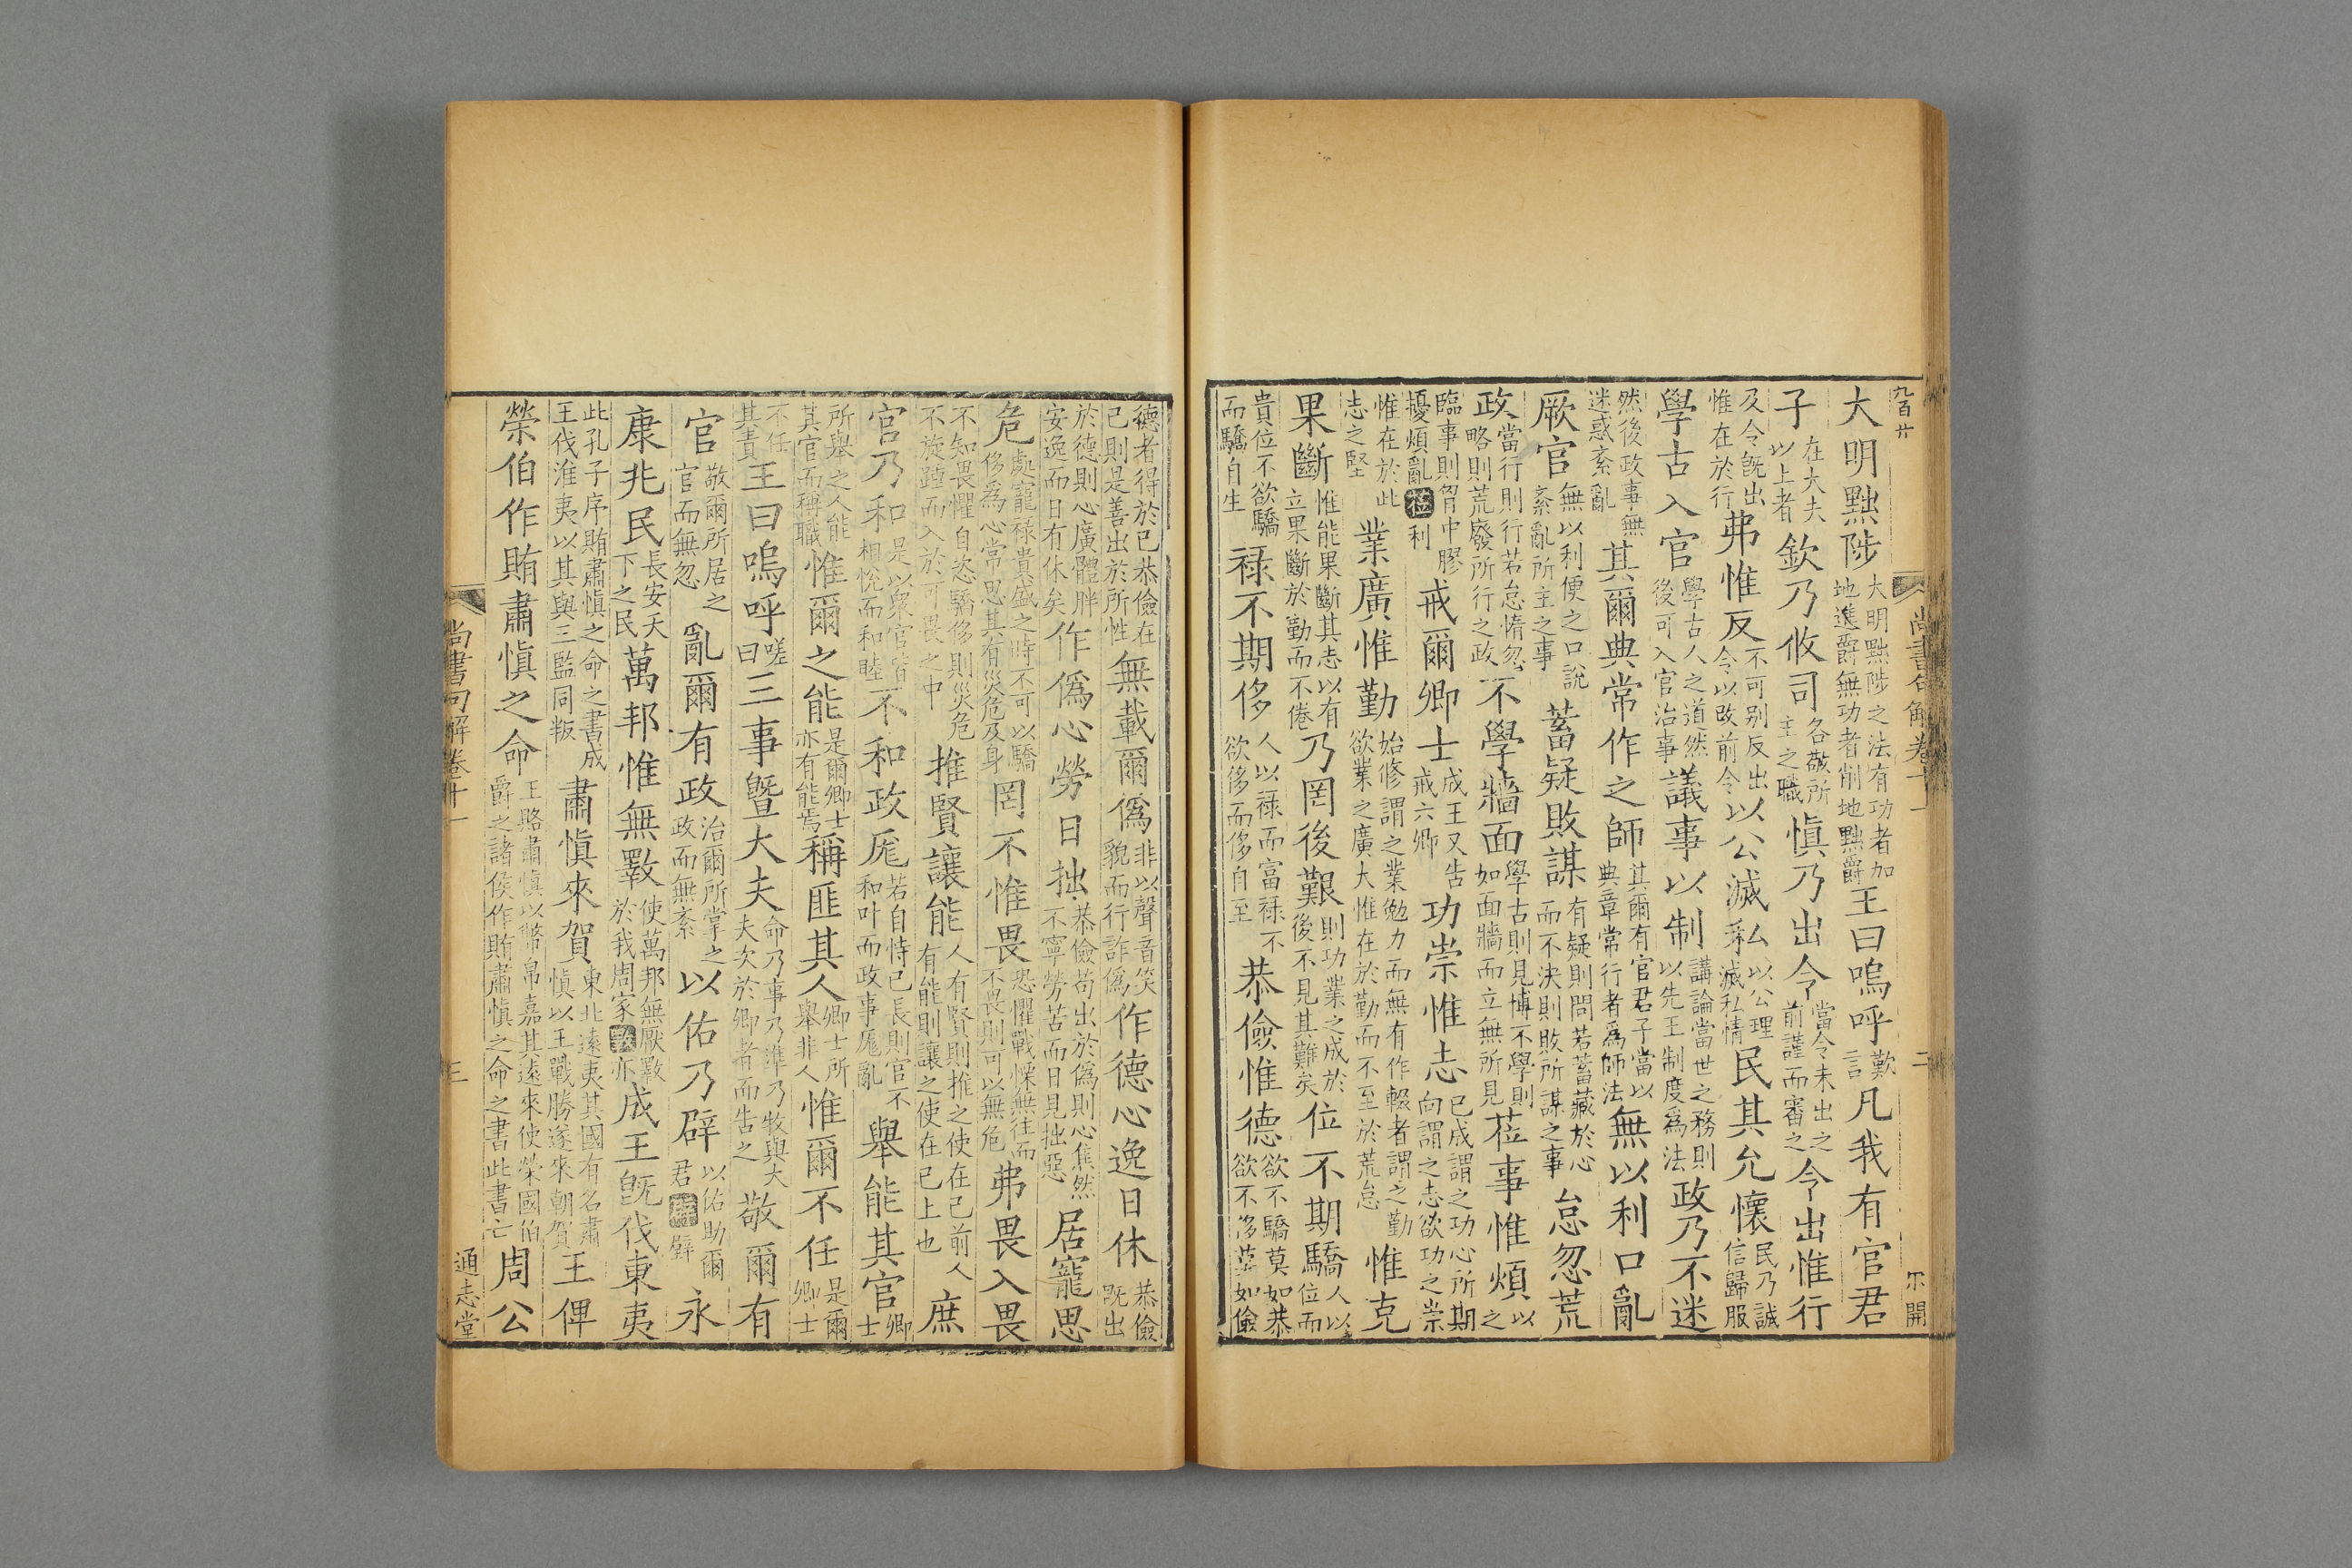 九百廿 尚書句解卷十一 二 开開
大明黜陟大明黜陟之法有功者加地進爵無功者削地黜爵王曰嗚呼歎言凡我有官君
子在大夫以上者欽乃攸司各敬所主之職慎乃出令當令未出之前謹而審之令出惟行
及令旣出惟在於行弗惟反不可别反出令以改前令以公滅私以公理滅私情民其允懷民乃誠信歸服
學古入官學古人之道然後可入官治事議事以制講論當世之務則以先王制度爲法政乃不迷
然後政事無迷惑紊亂其爾典常作之師其爾有官君子當以典章常行者爲師法無以利口亂
厥官無以利便之口說紊亂所主之事蓄疑敗謀有疑則問若蓄藏於心而不決則敗所謀之事怠忽荒
政當行則行若怠惰忽略則荒廢所行之政不學牆面學古則見博不學則如面牆而立無所見莅事惟煩以之
臨事則胷中膠擾煩亂莅利戒爾卿士成王又告戒六卿功崇惟志已成謂之功心所期向謂之志欲功之崇
惟在於此志之堅業廣惟勤始修謂之業勉力而無有作輟者謂之勤欲業之廣大惟在於勤而不至於荒怠惟克
果斷惟能果斷其志以有立果斷於勤而不倦乃罔後艱則功業之成於後不見其難矣位不期驕人以位而
貴位不欲驕而驕自生禄不期侈人以禄而富禄不欲侈而侈自至恭儉惟德欲不驕莫如恭欲不侈莫如儉
德者得於已恭儉在已則是善出於所性無載爾僞非以聲音笑貌而行詐僞作德心逸日休恭儉旣出
於德則心廣體胖安逸而日有休矣作僞心勞日拙恭儉苟出於僞則心焦然不寧勞苦而日見拙惡居寵思
危處寵禄貴盛之時不可以驕侈爲心常思其有災危及身罔不惟畏恐懼戰慄無往而不畏則可以無危弗畏入畏
不知畏懼自恣驕侈則災危不旋踵而入於可畏之中推賢讓能人有賢則推之使在已前人有能則讓之使在已上也庶
官乃和是以衆官皆相悅而和睦不和政厖若自恃已長則官不和叶而政事厖亂舉能其官卿士
所舉之人能其官而稱職惟爾之能是爾卿士亦有能焉稱匪其人卿士所舉非人惟爾不任是爾卿士
不任其責王曰嗚呼嗟曰三事曁大夫命乃事乃準乃牧與大夫次於卿者而告之敬爾有
官敬爾所居之官而無忽亂爾有政治爾所掌之政而無紊以佑乃辟以佑助爾君辟壁永
康兆民長安天下之民萬邦惟無斁使萬邦無厭斁於我周家斁亦成王旣伐東夷
此孔子序賄肅慎之命之書成王伐淮夷以其與三監同叛肅慎來賀東北遠夷其國有名肅慎以王戰勝遂來朝賀王俾
榮伯作賄肅慎之命王賂肅慎以幣帛嘉其遠來使榮國伯爵之諸侯作賄肅慎之命之書此書亡周公
尚書句解卷十一 三 通志堂